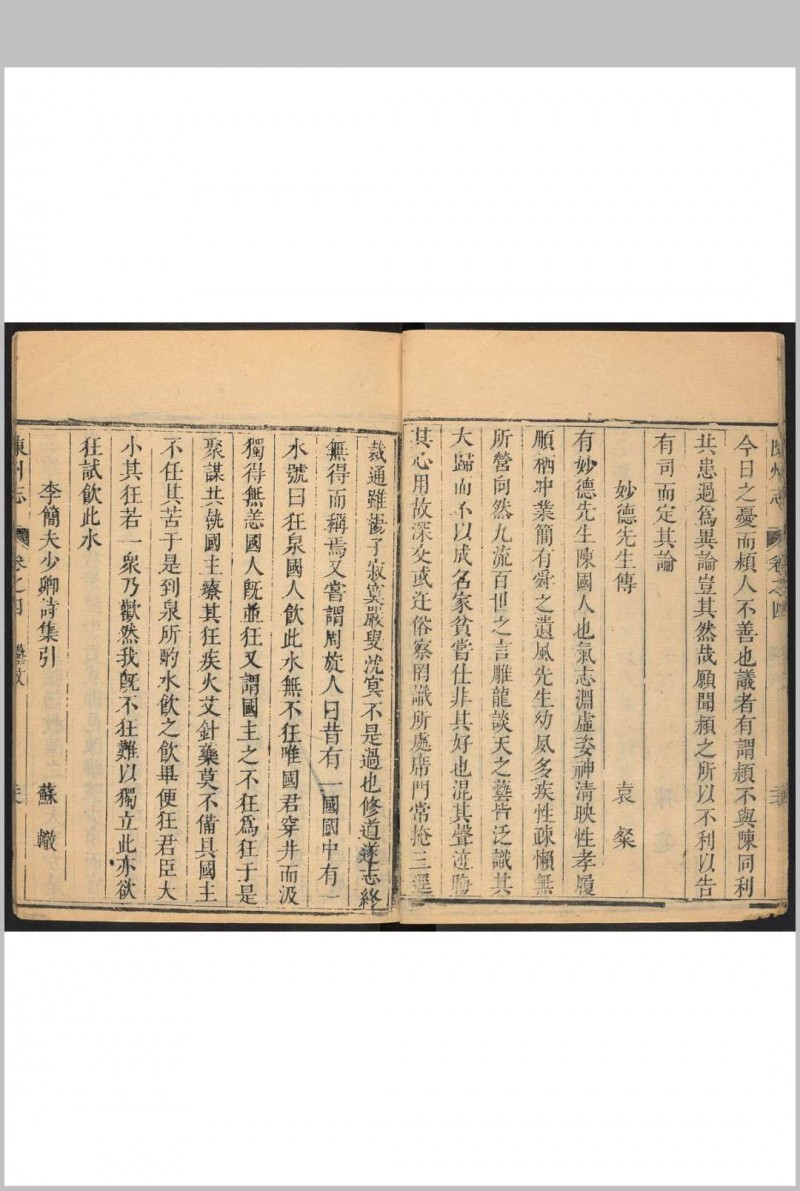 陳州志 卷之四
今日之憂而頻人不善也議者有謂頻不與陳同利
共患過爲異論豈其然哉願聞頻之所以不利以告
有司而定其論
妙德先生傳 袁粲
有妙德先生陳國人也氣志淵虛姿神清映性孝履
順栖冲業簡有舜之遺風先生幼夙多疾性疎懶無
所營向然九流百世之言雕龍談天之藝皆泛識其
大歸而不以成名家貧嘗仕非其好也混其聲迹晦
其心用故深交或迕俗察罔識所處席門常掩三逕
裁通雖揚子寂寞嚴叟沈冥不是過也修道遂志終
無得而稱焉又嘗謂周旋人曰昔有一國國中有一
水號曰狂泉國人飲此水無不狂唯國君穿井而汲
獨得無恙國人旣並狂又謂國主之不狂爲狂于是
聚謀共執國主療其狂疾火艾針藥莫不備具國主
不任其苦于是到泉所酌水飲之飲畢便狂君臣大
小其狂若一衆乃歡然我旣不狂難以獨立此亦欲
狂試飲此水
李簡夫少卿詩集引 蘇轍
陳州志 卷之四 藝文